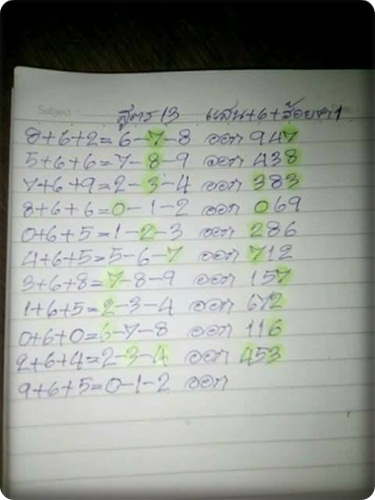 Subject
สูตร 13 แสน+6+ร้อย+1
8+6+2=6-7-8 ออก 947
5+6+6=7-8-9 ออก 438
7+6+9=2-3-4 ออก 383
8+6+6=0-1-2 ออก 069
0+6+5=1-2-3 ออก 286
4+6+5=5-6-7 ออก 712
3+6+8=7-8-9 ออก 157
1+6+5=2-3-4 ออก 672
0+6+0=6-7-8 ออก 116
2+6+4=2-3-4 ออก 453
9+6+5=0-1-2 ออก